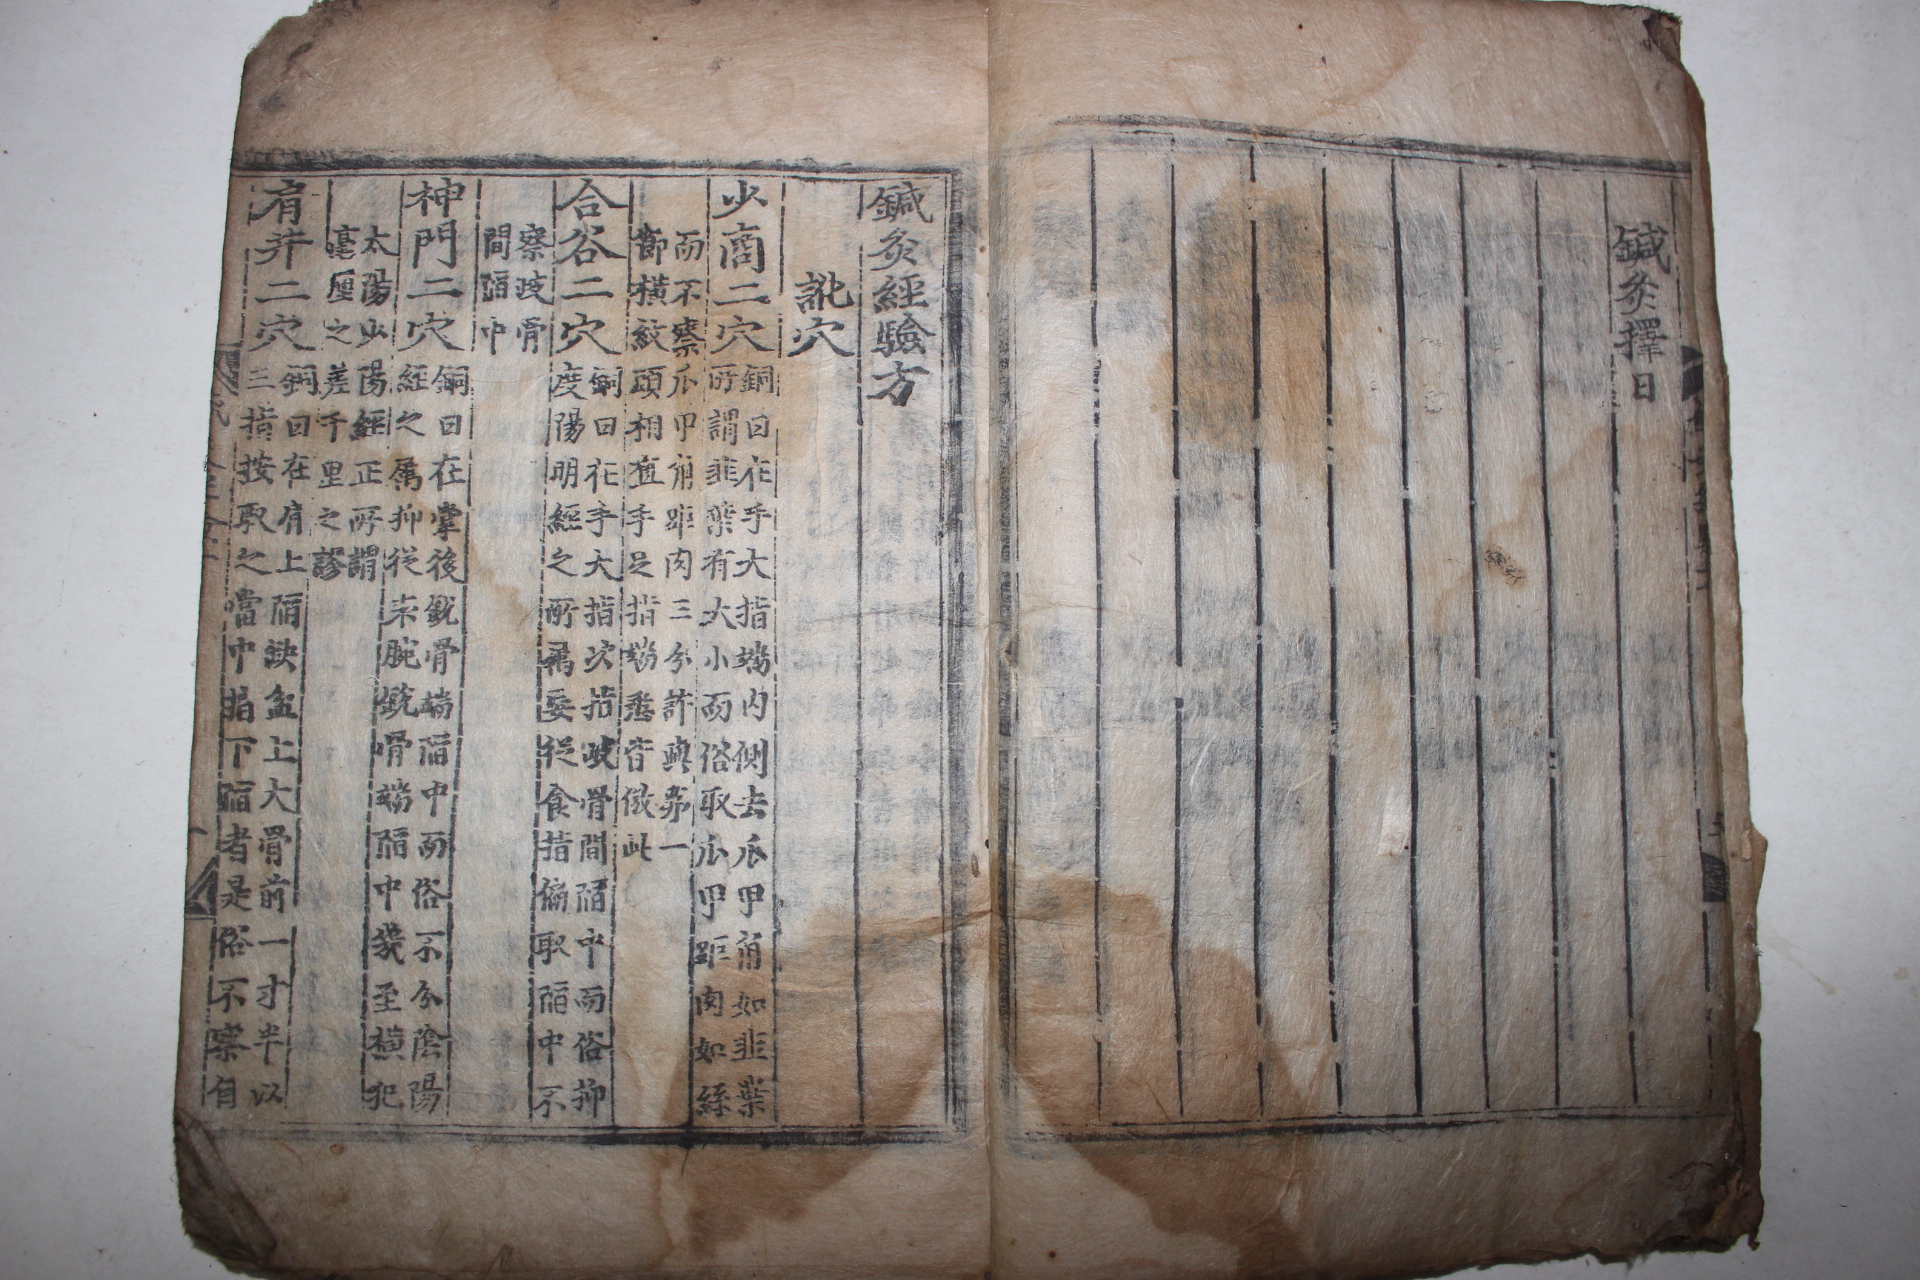 鍼灸擇日
鍼灸經驗方
訛穴
少商二穴
銅曰在手大指端內側去爪甲角如韭葉
所謂韭葉有大小而俗取爪甲距肉如絲
而不察爪甲角距肉三分許與第一
節橫紋頭相直手足指端悉皆倣此
合谷二穴
銅曰在手大指次指歧骨間陷中而俗抑
度陽明經之所屬妄從食指偏取陷中不
察歧骨
間陷中
神門二穴
銅曰在掌後銳骨端陷中而俗不分陰陽
經之屬抑從未腕銳骨端陷中幾至橫犯
太陽少陽經正所謂
毫厘之差千里之謬
肩井二穴
銅曰在肩上陷缺盆上大骨前一寸半以
三指按取之當中指下陷者是俗不察自